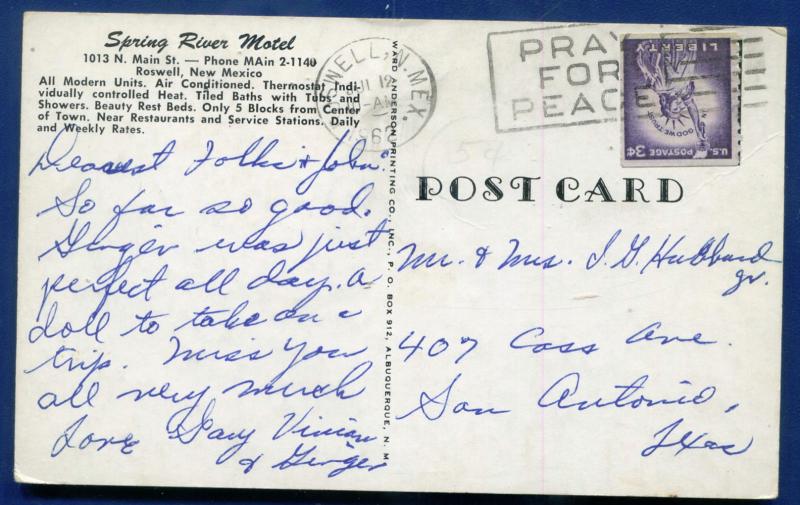 Spring River Motel
1013 N. Main St. — Phone MAin 2-1140
Roswell, New Mexico
All Modern Units. Air Conditioned. Thermostat Indi-
vidually controlled Heat. Tiled Baths with Tubs and
Showers. Beauty Rest Beds. Only 5 Blocks from Center
of Town. Near Restaurants and Service Stations. Daily
and Weekly Rates.
Dearest Folks & John:
So far so good.
Ginger was just
perfect all day. a
doll to take on a
trip. Miss you
all very much
Love Gary Vivian
& Ginger
WARD ANDERSON PRINTING CO., INC., P. O. BOX 912, ALBUQUERQUE, N. M.
ROSWELL, N. MEX.
12
AM
196
PRAY
FOR
PEACE
LIBERTY
IN GOD WE TRUST
U.S. POSTAGE 3¢
5¢
POST CARD
Mr. & Mrs. I. G. Hubbard
Jr.
407 Cass Ave.
San Antonio,
Texas